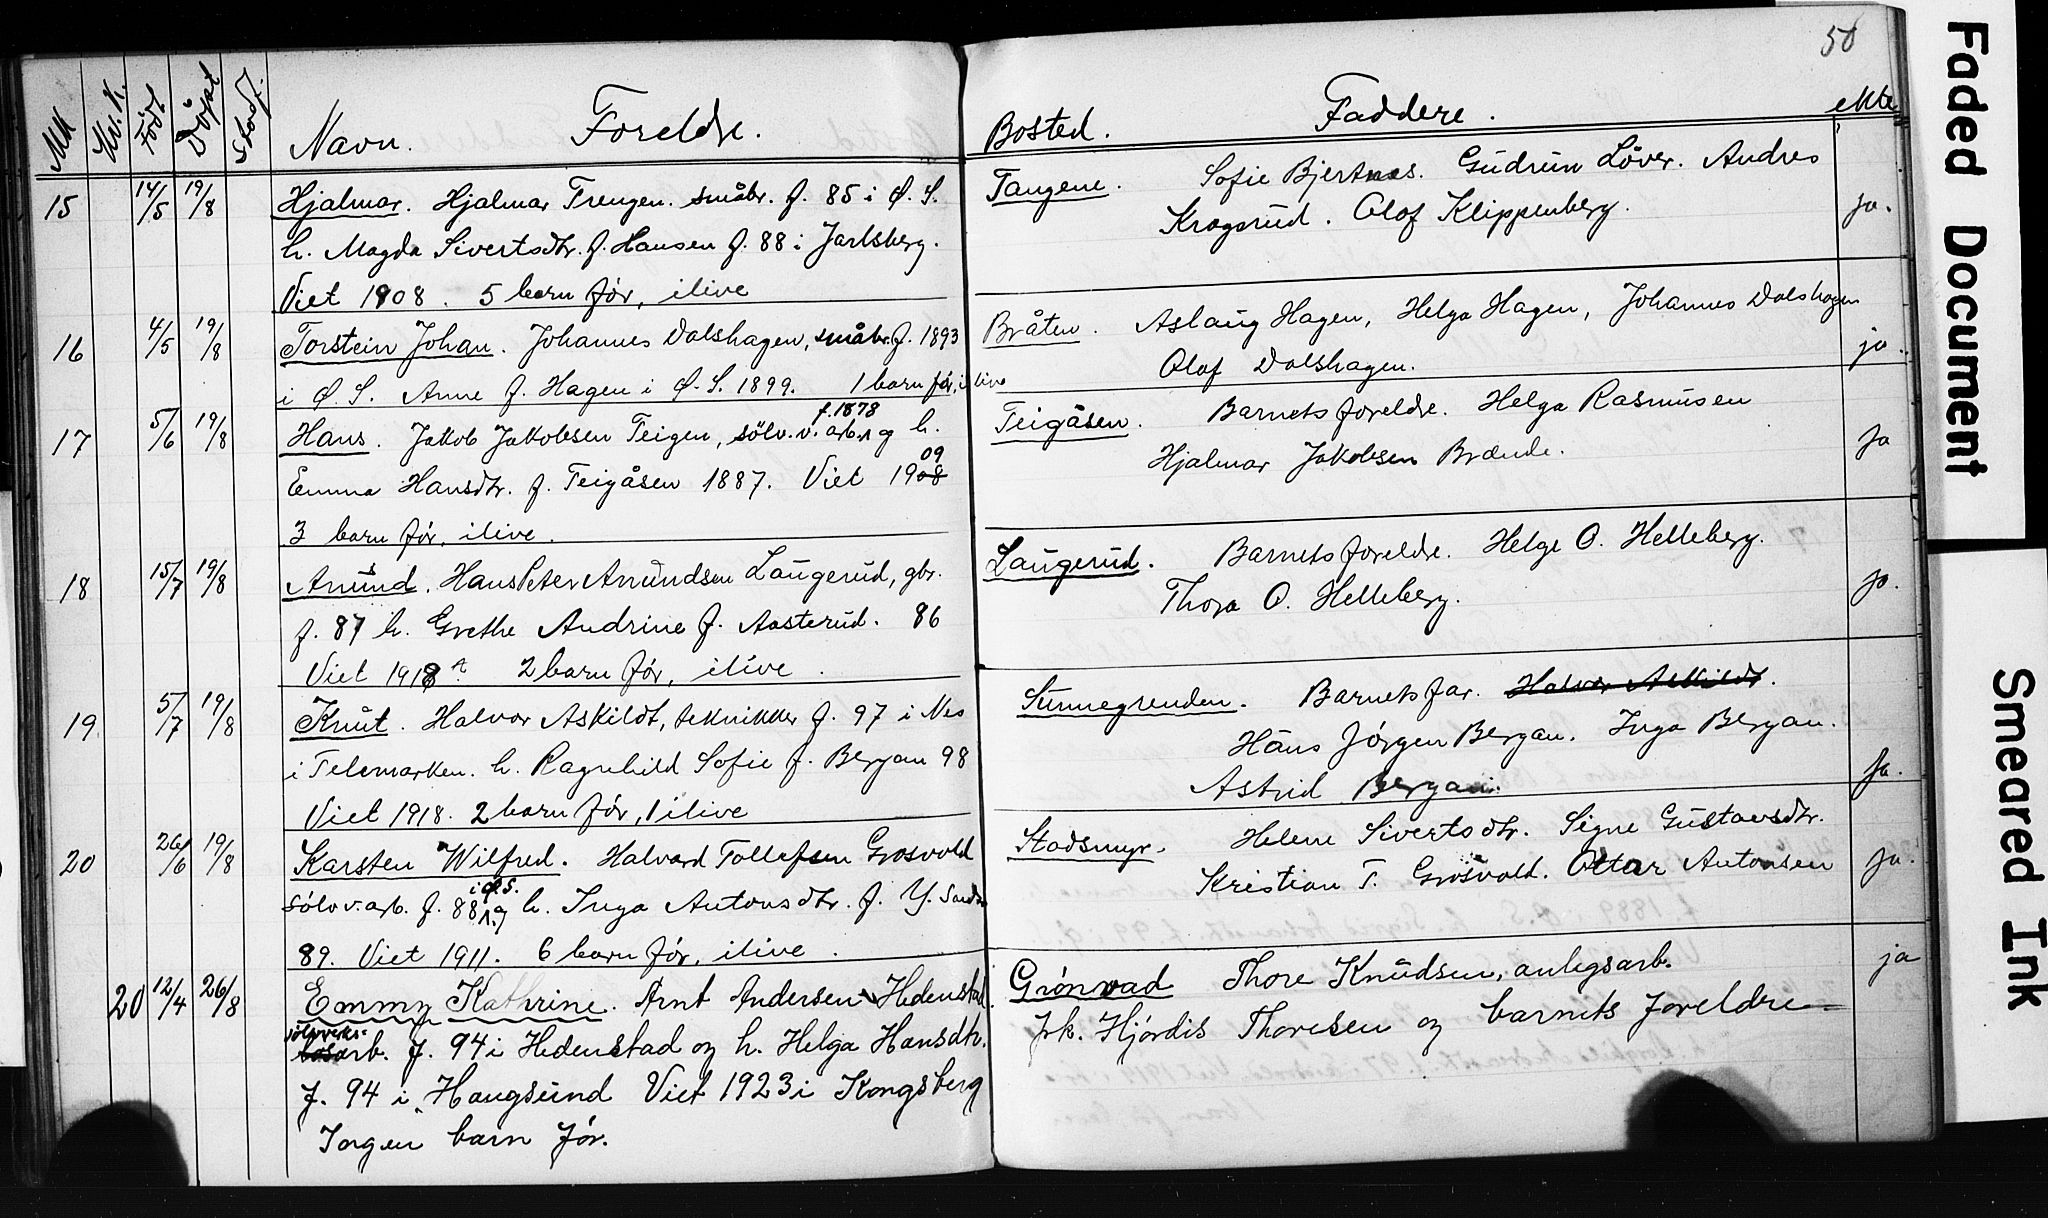 50
Mk Kv.K. Födt Döpt Stadf. Navn. Foreldre.
15 14/5 19/8 Hjalmar. Hjalmar Trengen. småbr. f. 85 i Ø. S.
h. Magda Sivertsdtr. f. Hansen f. 88 i Jarlsberg.
Viet 1908. 5 barn før, ilive
16 4/5 19/8 Torstein Johan. Johannes Dalshagen, småbr. f. 1893
i Ø. S. Anne f. Hagen i Ø. S. 1899. 1 barn før, i live
f. 1878
17 5/6 19/8 Hans. Jakob Jakobsen Teigen, sölv.v. arb. og h.
09
Emma Hansdtr. f. Teigåsen 1887. Viet 1908
3 barn før, ilive.
18 15/7 19/8 Amund. Hans Peter Amundsen Laugerud, gbr.
f. 87 h. Grethe Andrine f. Aasterud. 86
Viet 1918 2 barn før, ilive.
19 5/7 19/8 Knut. Halvor Askildt, tekniker f. 97 i Nes
i Telemarken. h. Ragnhild Sofie f. Bergan 98
Viet 1918. 2 barn før, 1 ilive
20 26/6 19/8 Karsten Wilfred. Halvard Tollefsen Grosvold
i Ø. S.
sölvv. arb. f. 88 og h. Inga Antonsdtr. f. Y. Sands
89. Viet 1911. 6 barn før, ilive.
20 12/4 26/8 Emmy Kathrine. Arnt Andersen Hedenstad.
sölvverks-
arb. f. 94 i Hedenstad og h. Helga Hansdtr.
f. 94 i Haugsund Viet 1923 i Kongsberg
Ingen barn før.
Bosted. Faddere. ekte
Tangene. Sofie Bjertnæs. Gudrun Löver. Andres
Kragsrud. Olaf Klippenberg. ja.
Bråten. Aslaug Hagen, Helga Hagen, Johannes Dalshagen
Olaf Dalshagen. ja.
Teigåsen. Barnets foreldre. Helga Rasmusen
Hjalmar Jakobsen Brænde. ja
Laugerud. Barnets foreldre. Helge O. Helleberg.
Thora O. Helleberg. ja.
Sunnegrenden. Barnets far. Halvor Askildt.
Hans Jörgen Bergan. Inga Bergan.
Astrid Bergan. ja.
Stadsmyr. Helene Sivertsdtr. Signe Gustavsdtr.
Kristian T. Grosvold. Ottar Antonsen ja.
Grönvad Thore Knudsen, anlegsarb. ja
frk. Hjördis Thoresen og barnets foreldre
Faded Document
Smeared Ink